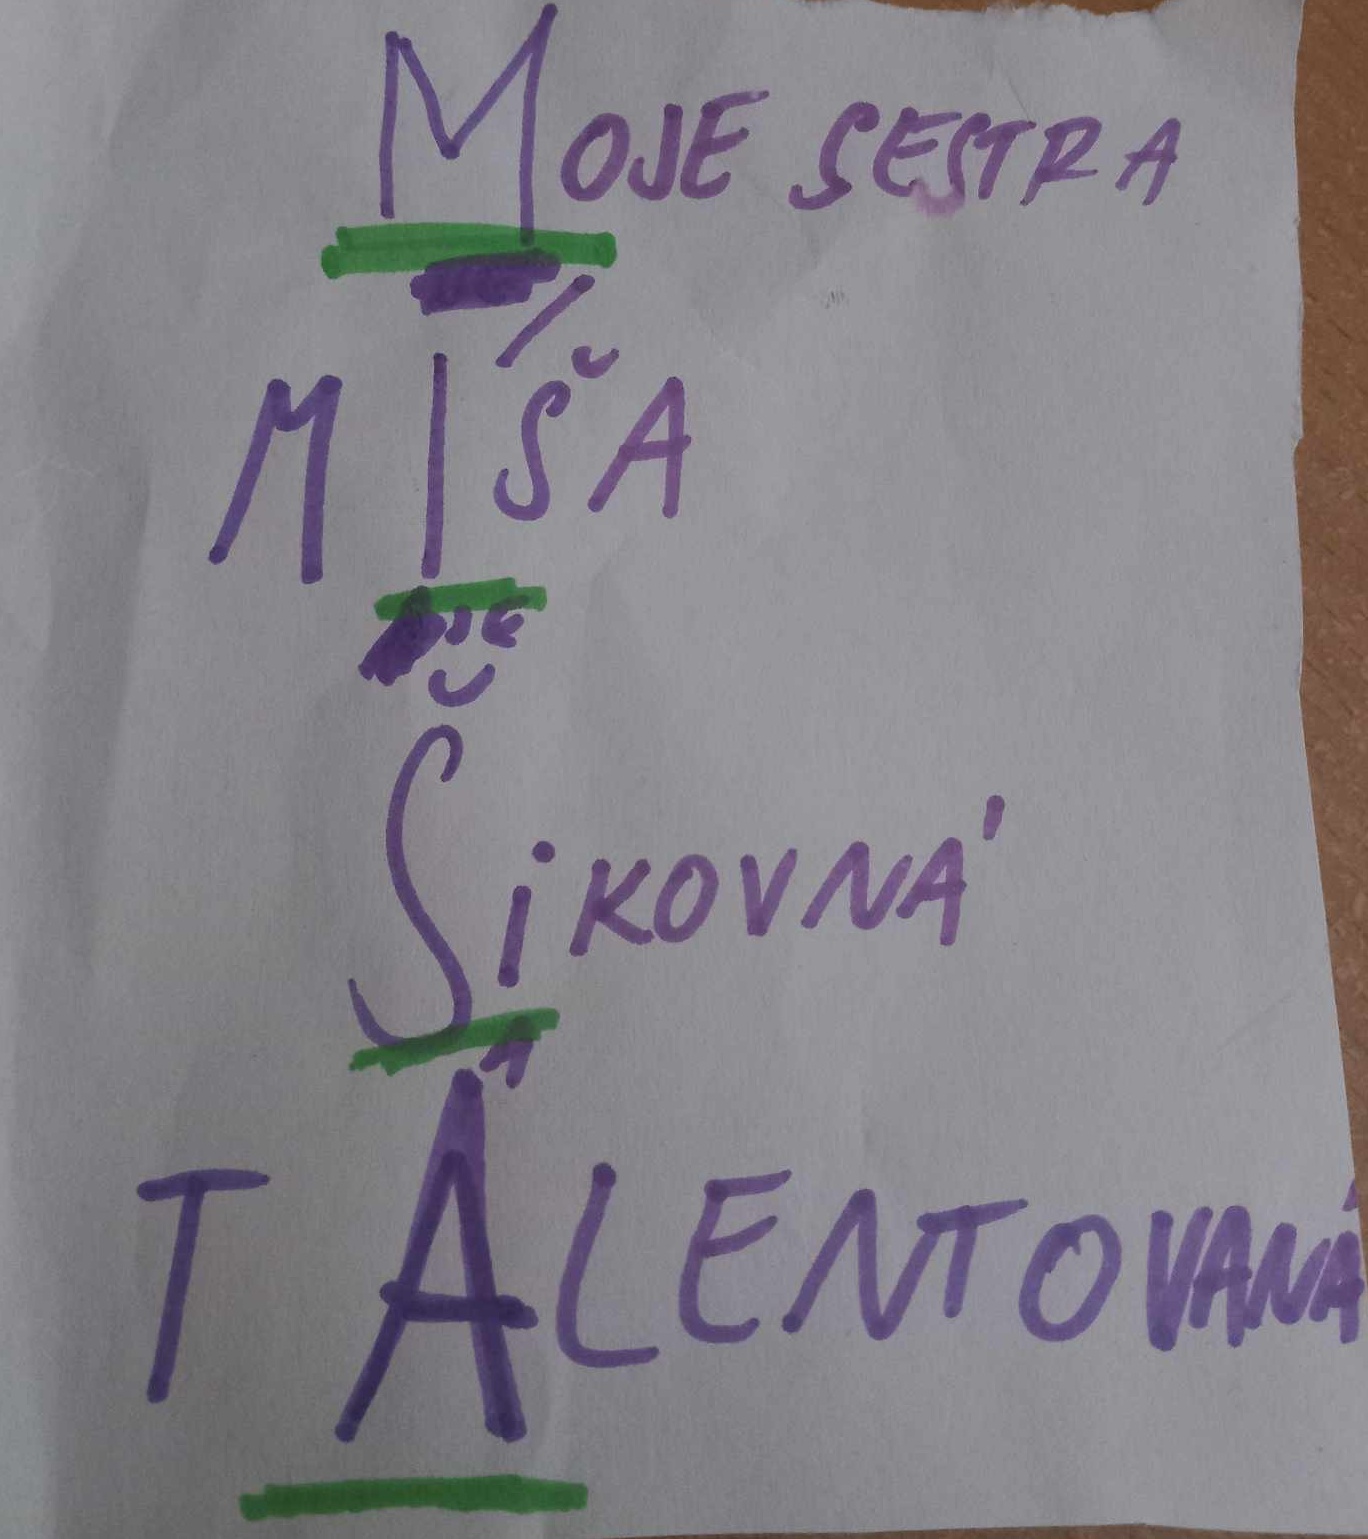 MOJE SESTRA
MÍŠA
JE
ŠiKOVNÁ
A
TALENTOVANÁ